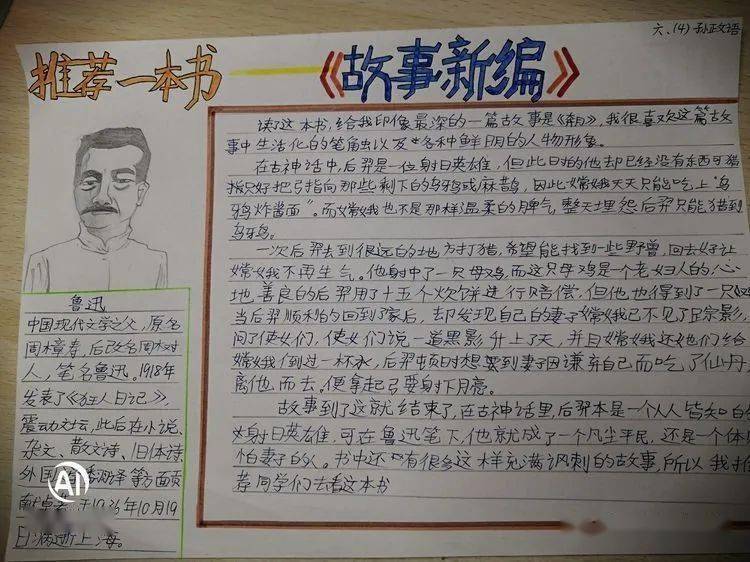 六、(4) 孙政语
推荐一本书
《故事新编》
读了这本书,给我印像最深的一篇故事是《奔月》,我很喜欢这篇故
事中生活化的笔触以及各种鲜明的人物形象。
在古神话中,后羿是一位射日英雄,但此时的他却已经没有东西可猎
指只好把弓指向那些剩下的乌鸦或麻鹊,因此嫦娥天天只能吃上“乌
鸦炸酱面”。而嫦娥也不是那样温柔的脾气,整天埋怨后羿只能猎到
乌鸦。
一次后羿去到很远的地方打猎,希望能找到一些野兽,回去好让
嫦娥我不再生气。他射中了一只母鸡,而这只母鸡是个老妇人的,心
地善良的后羿用了十五个炊饼进行赔偿,但他也得到了一只
当后羿顺利的回到了家后,却发现自己的妻子嫦娥已不见了踪影,
问了使女们,使女们说一道黑影升上了天,并且嫦娥还她们给
嫦娥倒过一杯水,后羿顿时想要到妻子因谦弃自己而吃了仙丹,
离他而去,便拿起弓要射下月亮。
故事到了这就结束了,在古神话里,后羿本是一个人人皆知的
射日英雄,可在鲁迅笔下,他就成了一个凡尘平民,还是一个
怕妻子的人。书中还有很多这样充满讽刺的故事,所以我推
荐同学们去看这本书
鲁迅
中国现代文学之父,原名
周樟寿,后改名周树
人,笔名鲁迅。1918年
发表了《狂人日记》,
震动文坛,此后在小说、
杂文、散文诗、旧体诗
外国 翻译等方面贡
献卓 于1936年10月19
日病逝上海。
AI